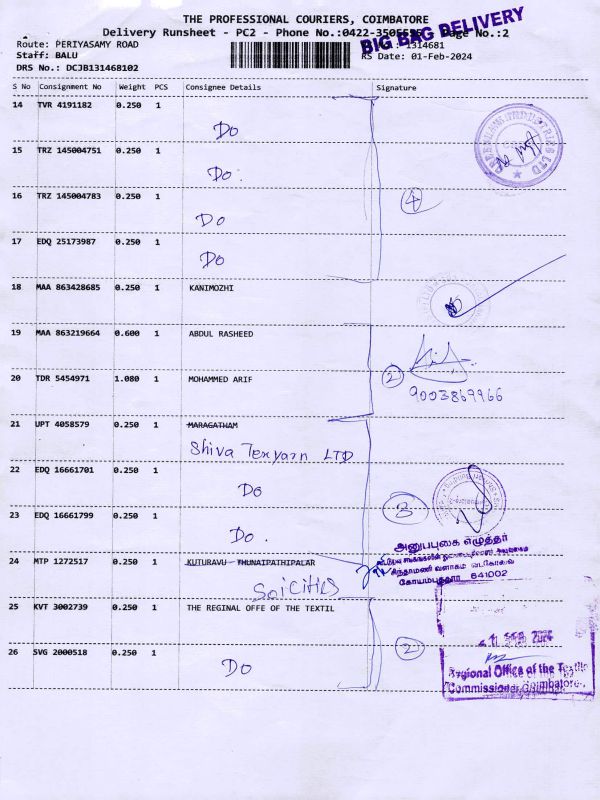 THE PROFESSIONAL COURIERS, COIMBATORE
Delivery Runsheet - PC2 - Phone No.:0422-3505555 Page No.:2
BIG BAG DELIVERY
Route: PERIYASAMY ROAD 1314681
Staff: BALU RS Date: 01-Feb-2024
DRS No.: DCJB131468102
S No Consignment No Weight PCS Consignee Details Signature
14 TVR 4191182 0.250 1
Do
15 TRZ 145004751 0.250 1
Do
16 TRZ 145004783 0.250 1
Do
4
17 EDQ 25173987 0.250 1
Do
18 MAA 863428685 0.250 1 KANIMOZHI
19 MAA 863219664 0.600 1 ABDUL RASHEED
20 TDR 5454971 1.080 1 MOHAMMED ARIF
2
9003869966
21 UPT 4058579 0.250 1 MARAGATHAM
Shiva Texyarn LTD
22 EDQ 16661701 0.250 1
Do
3
23 EDQ 16661799 0.250 1
Do.
அனுப்புகை எழுத்தர்
சிந்தாமணி வளாகம் வடகோவை
கோயம்புத்தூர் 641002
24 MTP 1272517 0.250 1 KUTURAVU THUNAIPATHIPALAR
SoiCities
25 KVT 3002739 0.250 1 THE REGINAL OFFE OF THE TEXTIL
26 SVG 2000518 0.250 1
Do
2
Regional Office of the Textile
Commissioner, Coimbatore.